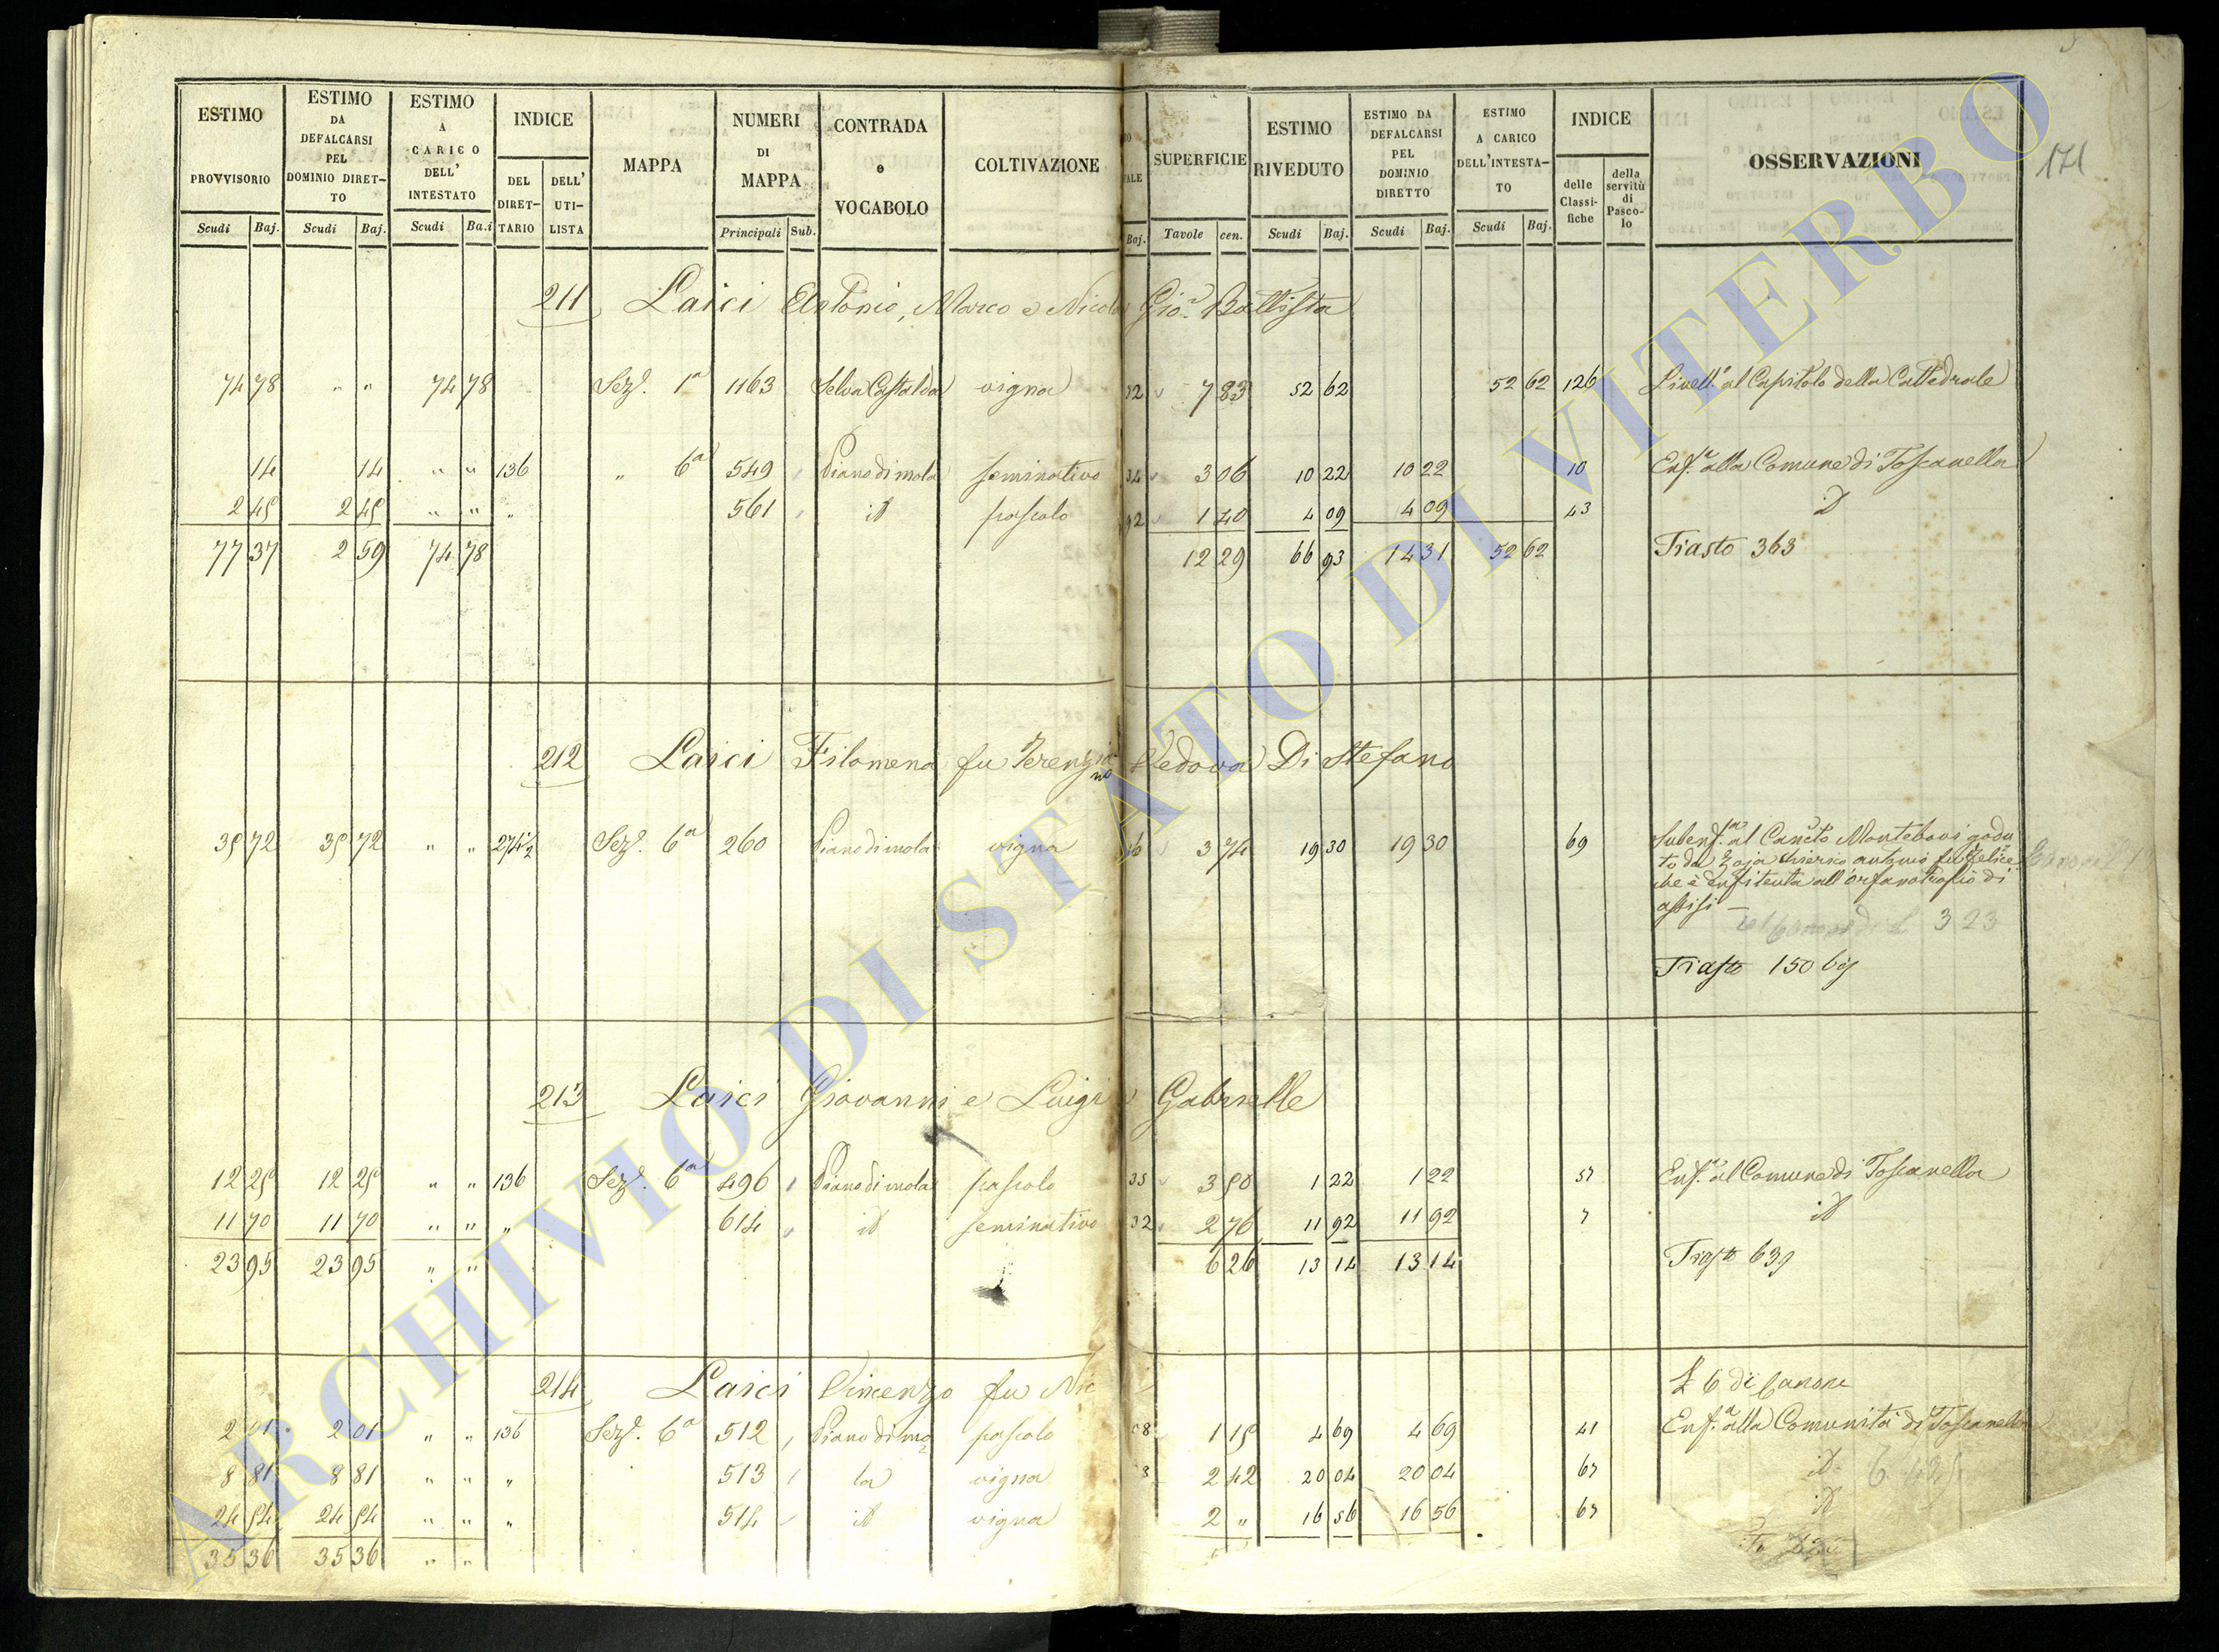 171
ESTIMO PROVVISORIO Scudi Baj.
ESTIMO DA DEFALCARSI PEL DOMINIO DIRETTO Scudi Baj.
ESTIMO A CARICO DELL' INTESTATO Scudi Ba.i
INDICE DEL DIRETTARIO DELL' UTILISTA
MAPPA
NUMERI DI MAPPA Principali Sub.
CONTRADA e VOCABOLO
COLTIVAZIONE
Baj.
SUPERFICIE Tavole cen.
ESTIMO RIVEDUTO Scudi Baj.
ESTIMO DA DEFALCARSI PEL DOMINIO DIRETTO Scudi Baj.
ESTIMO A CARICO DELL'INTESTATO Scudi Baj.
INDICE delle Classifiche della servitù di Pascolo
OSSERVAZIONI
211 Laici Antonio, Marco e Nicola Gio. Battista
74 78 " " 74 78 Sez.e 1a 1163 Selva Castalda vigna 7 83 52 62 52 62 126 Livell.o al Capitolo della Cattedrale
14 14 " " 136 " 6a 549 Piano di mola seminativo 3 06 10 22 10 22 10 Enf.a alla Comune di Toscanella
2 45 2 45 " " " 561 id pascolo 1 40 4 09 4 09 43 id
77 37 2 59 74 78 12 29 66 93 14 31 52 62 Tiasto 363
212 Laici Filomena fu Terenziano Vedova Di Stefano
35 72 35 72 " " 274½ Sez.e 6a 260 Piano di mola vigna 3 74 19 30 19 30 69 Subenf.a al Can.to Montebovi godu
to da Zaja chierico antonio fu Felice
che è Enfiteuta all'orfanotrofio di
assisi
323
Tiasto 150 bis
213 Laici Giovanni e Luigi Gabrielle
12 25 12 25 " " 136 Sez.e 6a 496 Piano di mola pascolo 35 3 50 1 22 1 22 57 Enf.a al Comune di Toscanella
11 70 11 70 " " " 614 id seminativo 32 2 76 11 92 11 92 7 id
23 95 23 95 " " 6 26 13 14 13 14 Tiasto 639
214 Laici Vincenzo fu Nic £ 6 di Canone
2 01 2 01 " " 136 Sez.e 6a 512 Piano di mo pascolo 1 15 4 69 4 69 41 Enf.a alla Comunità di Toscanella
8 81 8 81 " " " 513 la vigna 2 42 20 04 20 04 67 id
24 54 24 54 " " " 514 id vigna 2 " 16 56 16 56 67 id
35 36 35 36 " "
ARCHIVIO DI STATO DI VITERBO